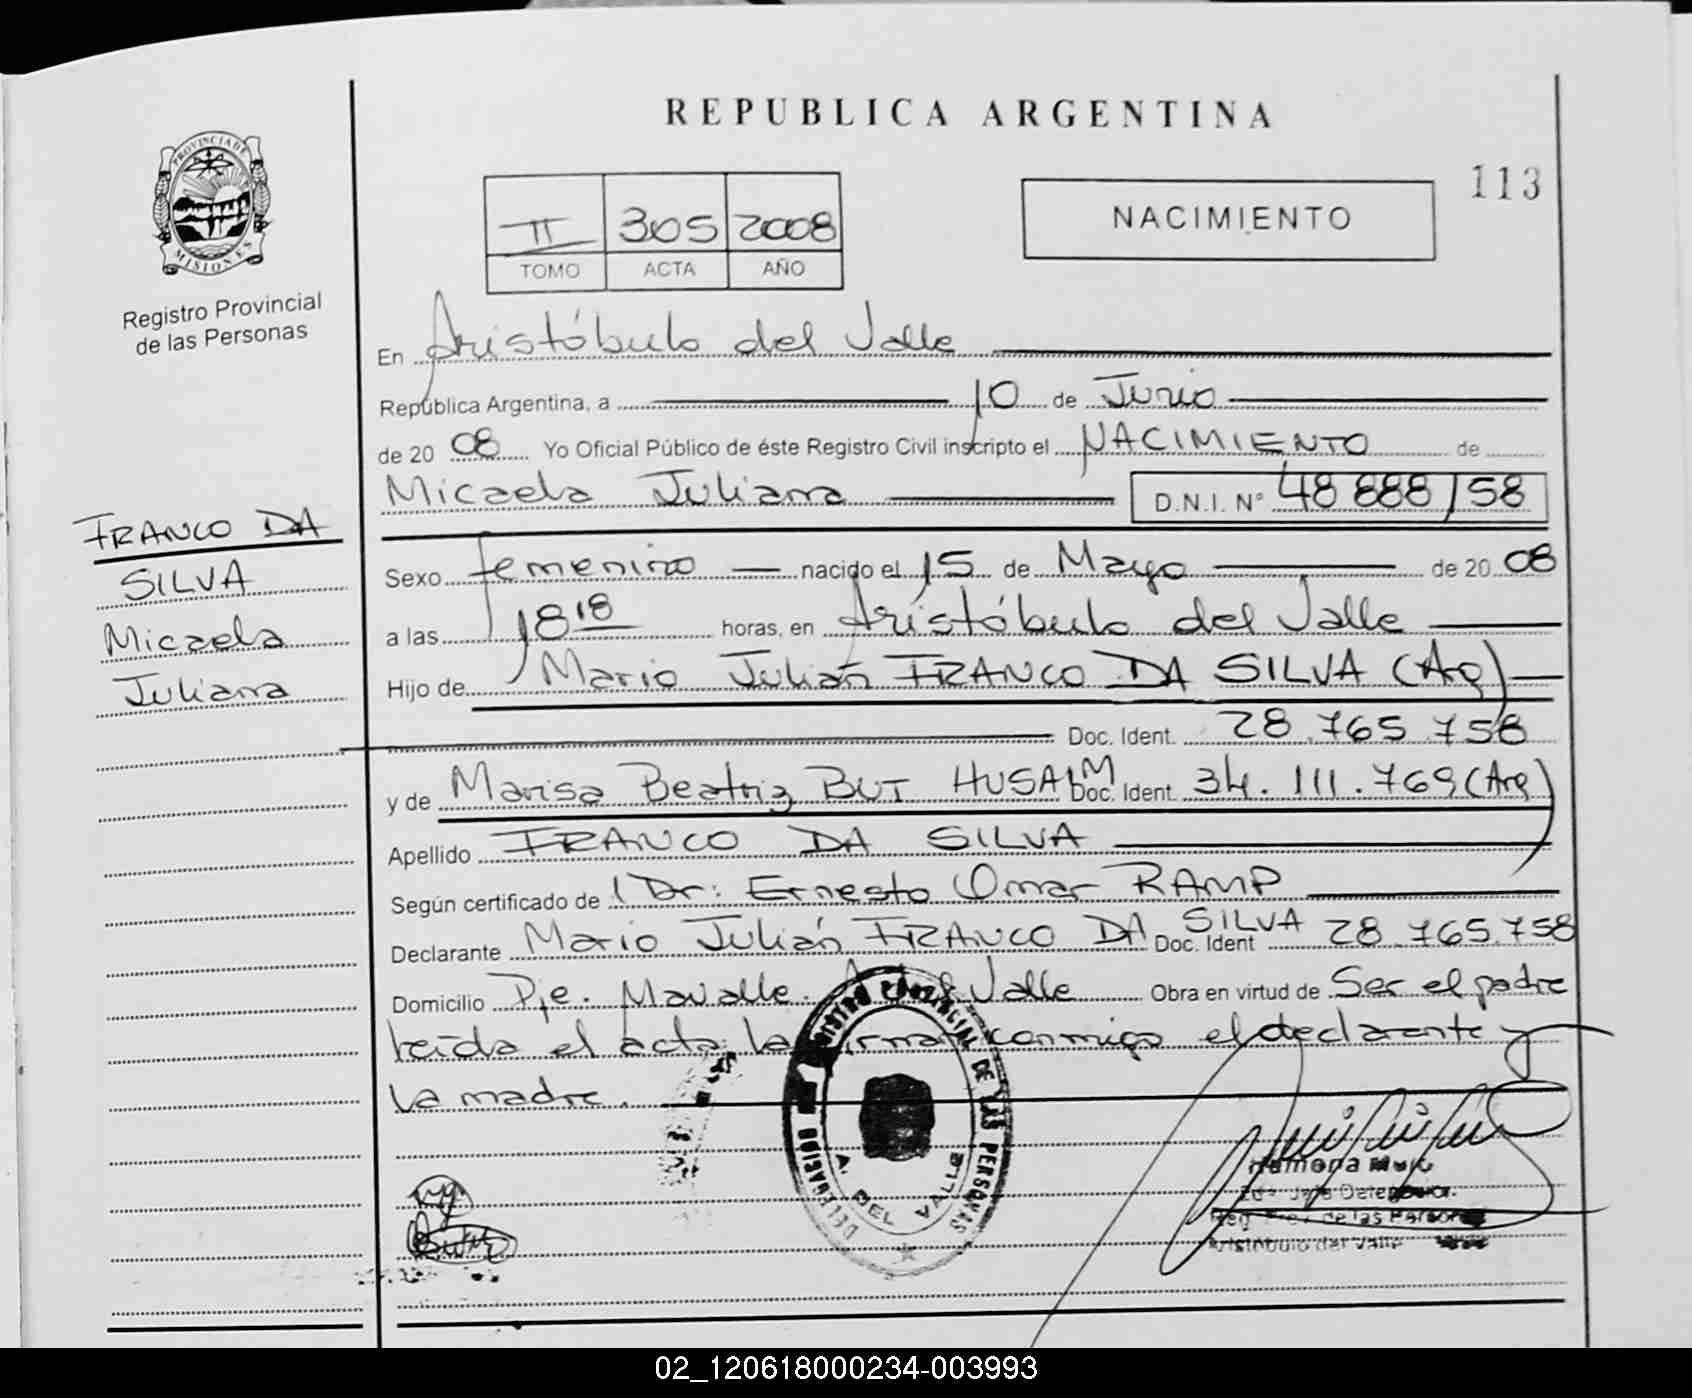 REPUBLICA ARGENTINA
113
PROVINCIA DE
MISIONES
Registro Provincial
de las Personas
II 305 2008
TOMO ACTA AÑO
NACIMIENTO
En Aristóbulo del Valle
República Argentina, a 10 de Junio
de 20 08 Yo Oficial Público de éste Registro Civil inscripto el NACIMIENTO de
Micaela Juliana D.N.I. N° 48 888 158
FRANCO DA
SILVA
Micaela
Juliana
Sexo femenino nacido el 15 de Mayo de 20 08
a las 18 18 horas, en Aristóbulo del Valle
Hijo de Mario Julián FRANCO DA SILVA (Arg)
Doc. Ident. 28.765.758
y de Marisa Beatriz BUT HUSAIM Doc. Ident. 34.111.769 (Arg)
Apellido FRANCO DA SILVA
Según certificado de Dr: Ernesto Omar RAMP
Declarante Mario Julián FRANCO DA SILVA Doc. Ident 28.765.758
Domicilio Pje. Mavalle. Valle Obra en virtud de Ser el padre
leída el acta la firman conmigo el declarante y
la madre.
REGISTRO PROVINCIAL DE LAS PERSONAS
DELEGACION
A. DEL VALLE
Ramona
de las Personas
Aristóbulo del Valle
02_120618000234-003993